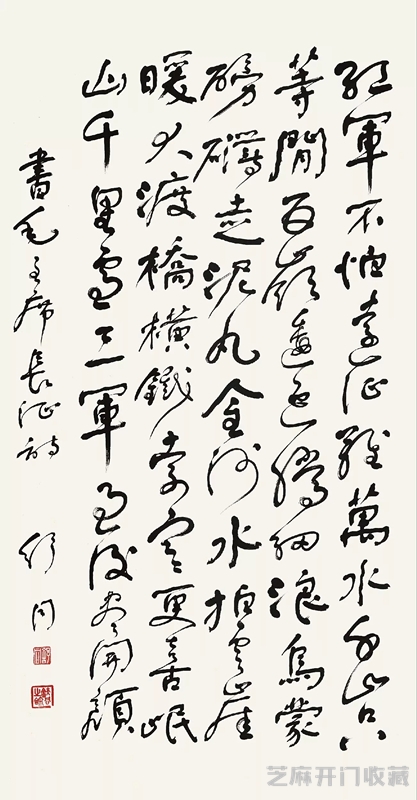 紅軍不怕遠征難萬水千山只
等閒五嶺逶迤騰細浪烏蒙
磅礴走泥丸金沙水拍雲崖
暖大渡橋橫鐵索寒更喜岷
山千里雪三軍過後盡開顏
書毛主席長征詩 舒同
芝麻开门收藏